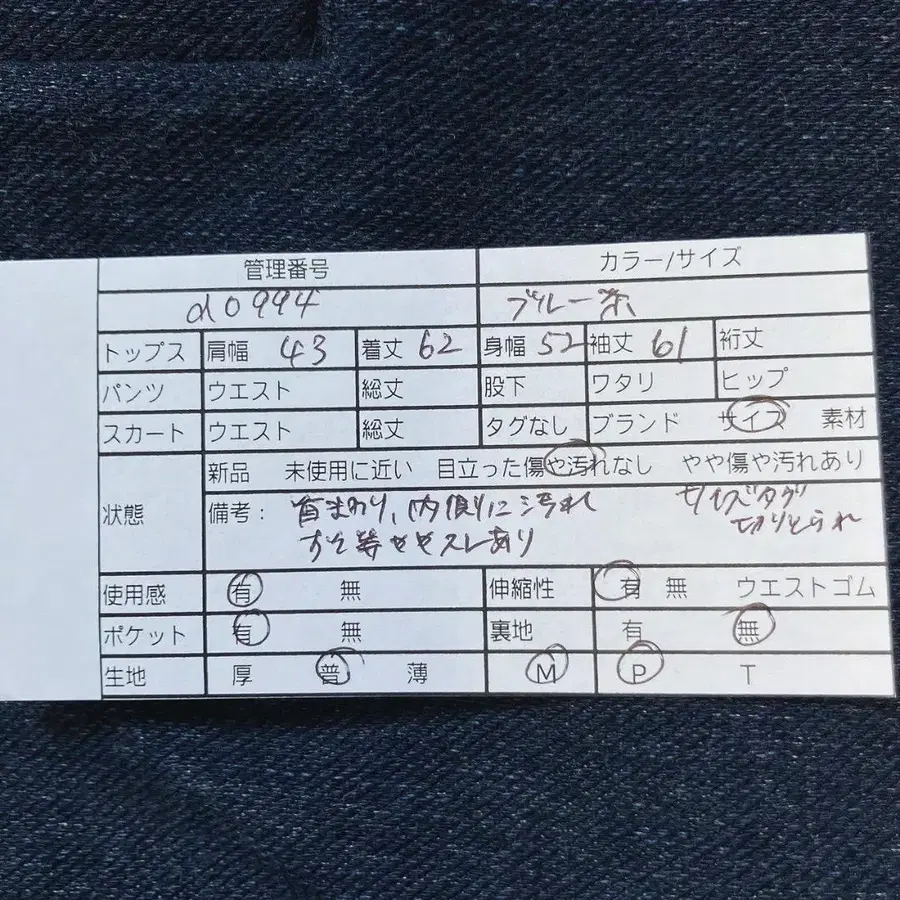 管理番号 カラー/サイズ
d0994 ブルー系
トップス 肩幅 43 着丈 62 身幅 52 袖丈 61 裄丈
パンツ ウエスト 総丈 股下 ワタリ ヒップ
スカート ウエスト 総丈 タグなし ブランド サイズ 素材
状態 新品 未使用に近い 目立った傷や汚れなし やや傷や汚れあり
備考： 首まわり、内側に汚れ サイズタグ
すそ等ややスレあり 切りとられ
使用感 有 無 伸縮性 有 無 ウエストゴム
ポケット 有 無 裏地 有 無
生地 厚 普 薄 M P T